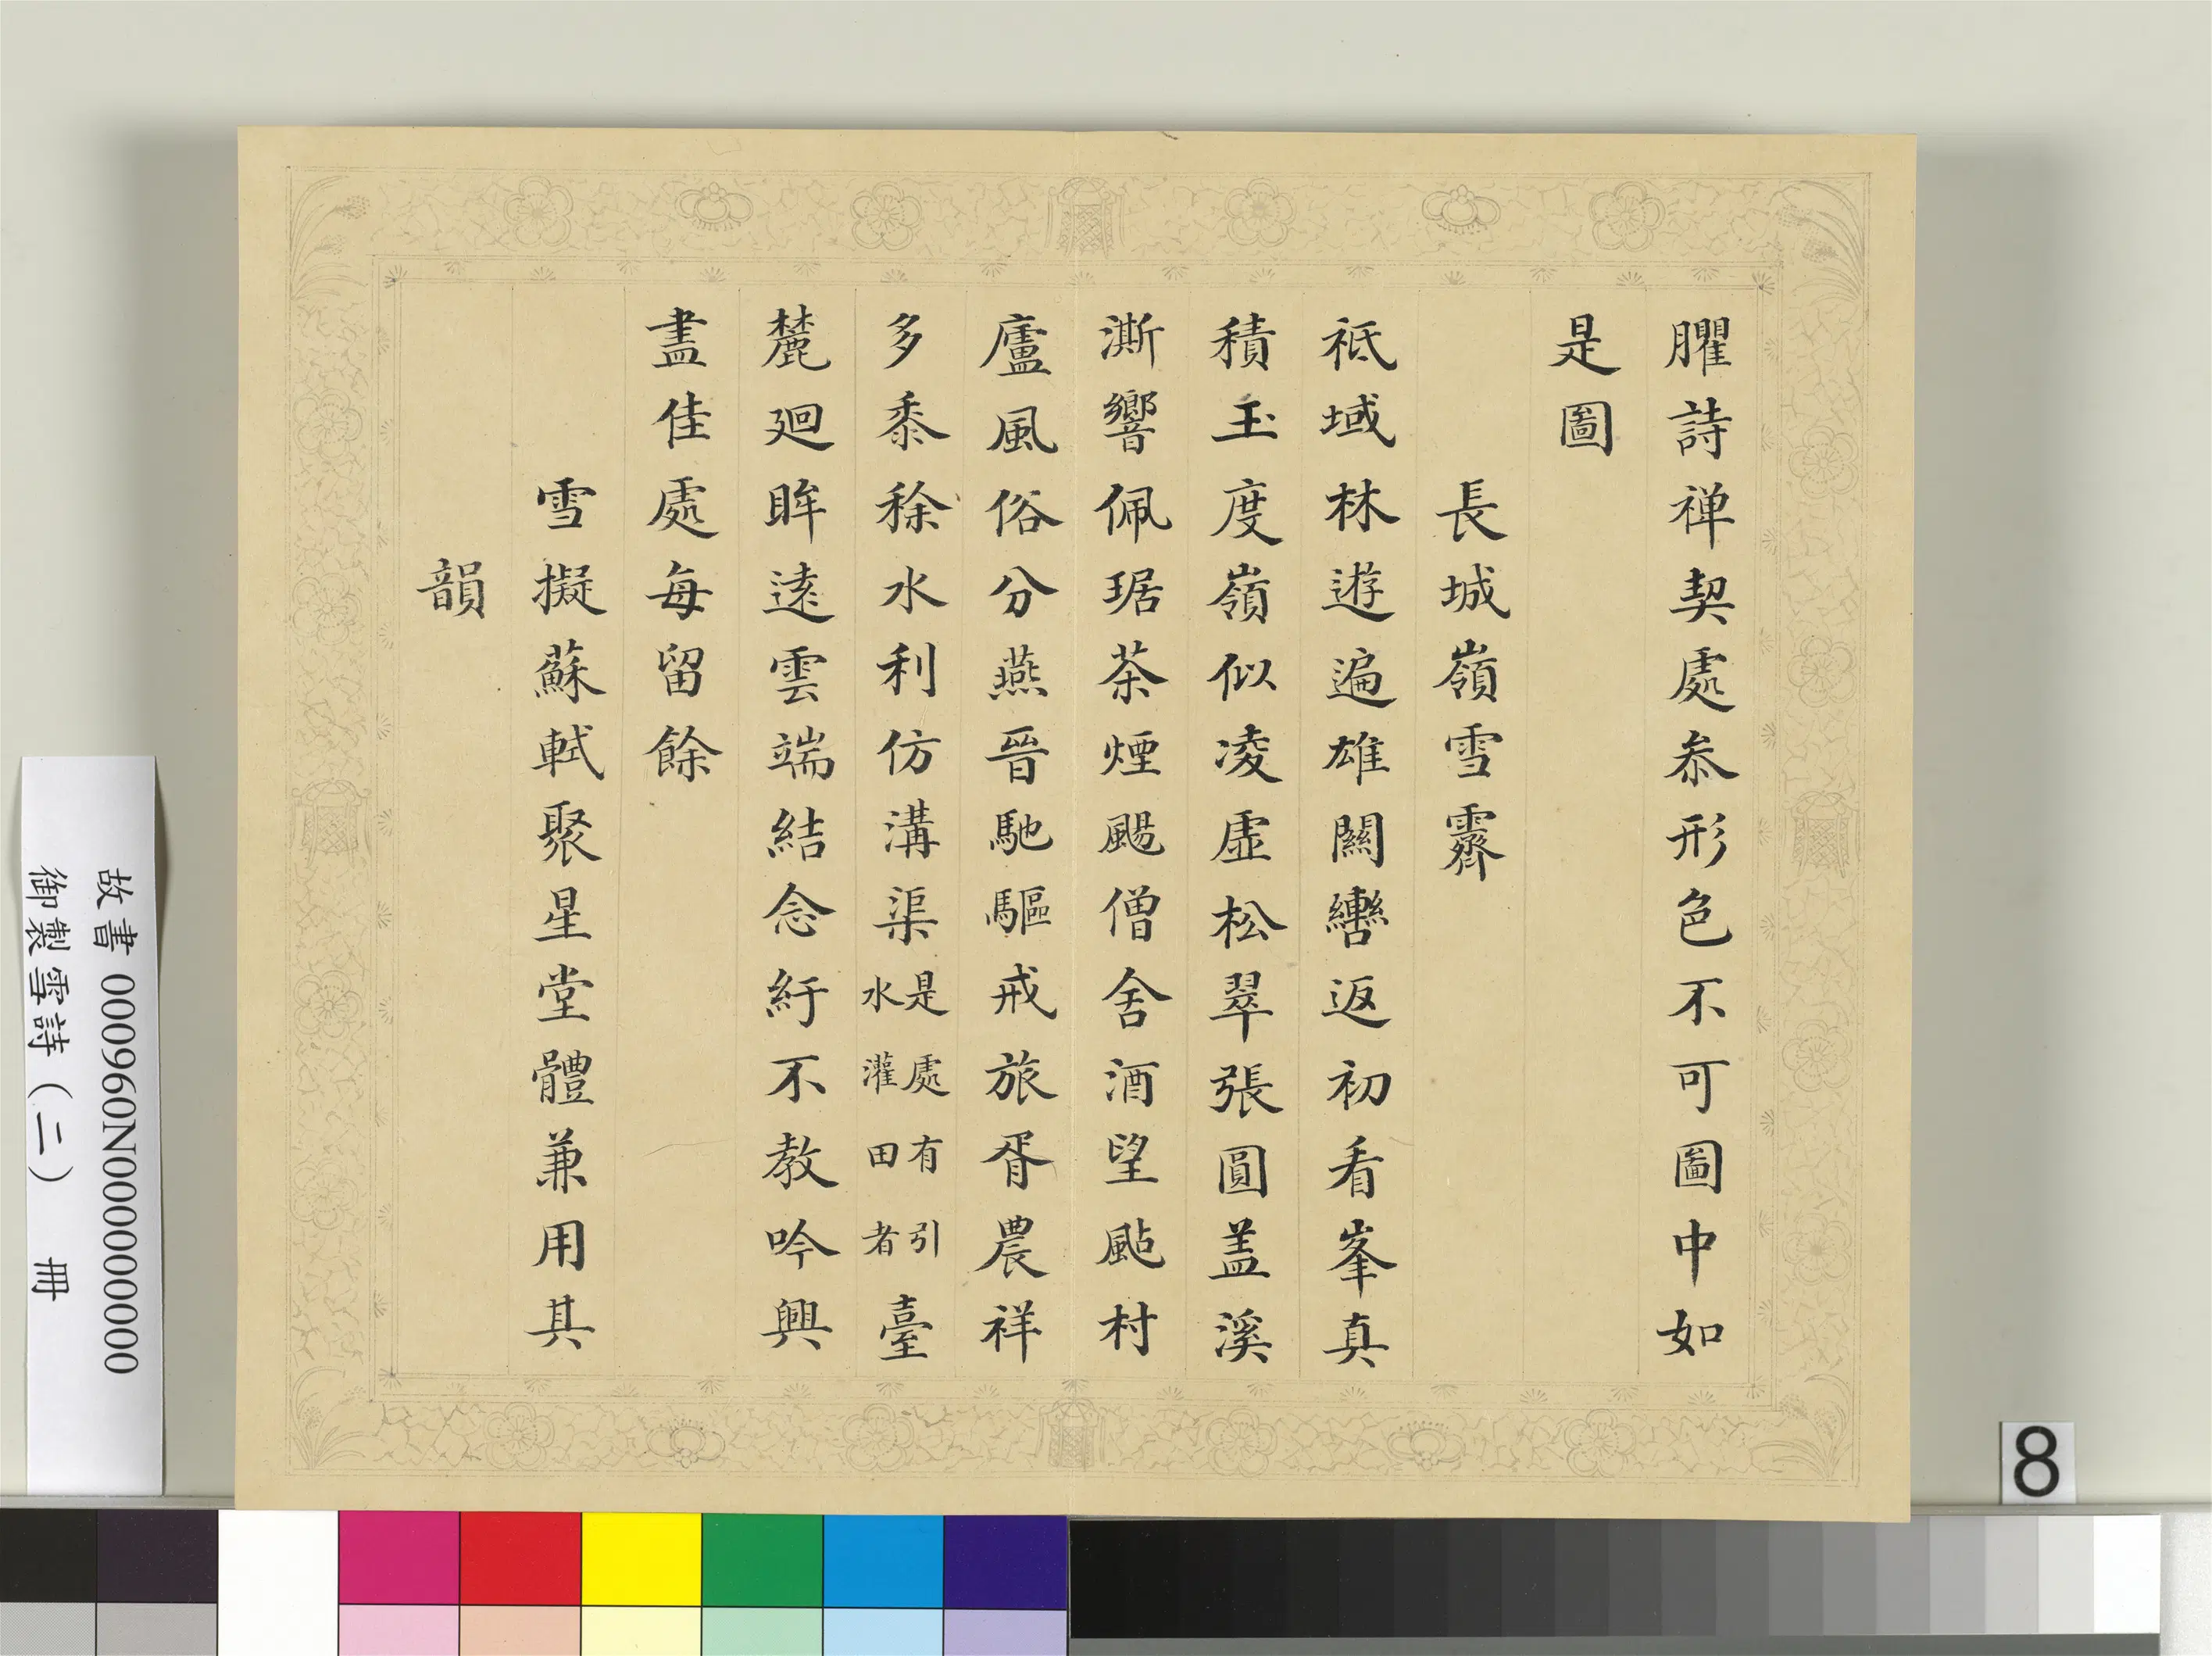 臞詩禅契處叅形色不可圖中如
是圖
長城嶺雪霽
祗域林遊遍雄關轡返初看峯真
積玉度嶺似凌虛松翠張圓蓋溪
澌響佩琚茶煙颺僧舍酒望颭村
廬風俗分燕晉馳驅戒旅胥農祥
多黍稌水利仿溝渠是處有引水灌田者臺
麓廻眸遠雲端結念紆不教吟興
盡佳處每留餘
雪擬蘇軾聚星堂體兼用其
韻
故書 000960N000000000
御製雪詩(二) 冊
8